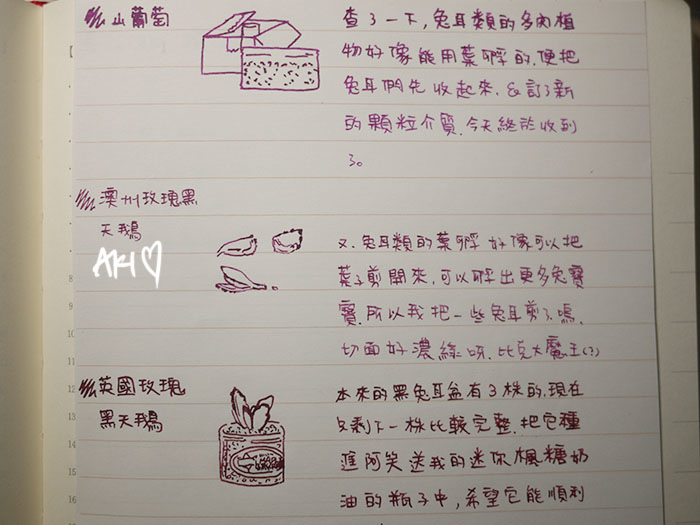 山葡萄
查了一下,兔耳類的多肉植
物好像能用葉孵的.便把
兔耳們先收起來.&訂了新
的顆粒介質.今天終於收到
了。
澳州玫瑰黑
天鵝
AKI♡
又.兔耳類的葉孵好像可以把
葉子剪開來,可以孵出更多兔寶
寶.所以我把一些兔耳剪了嗚.
切面好濃綠呀.比克大魔王(?)
英國玫瑰
黑天鵝
本來的黑兔耳盆有3株的.現在
只剩下一株比較完整.把它種
進阿笑送我的迷你楓糖奶
油的瓶子中,希望它能順利
8
9
10
11
12
13
14
15
16